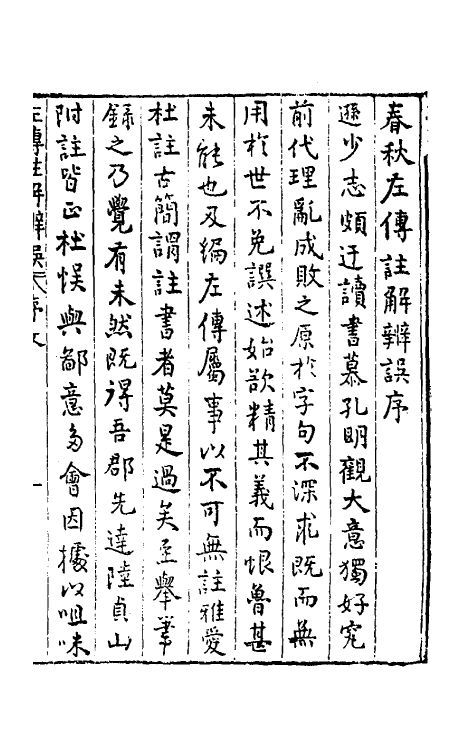 春秋左傳註解辨誤序
遜少志頗迂讀書慕孔明觀大意獨好究
前代理亂成敗之原於字句不深求既而無
用於世不免譔述始欲精其義而恨魯甚
未能也及編左傳屬事以不可無註雅愛
杜註古簡謂註書者莫是過矣至舉筆
錄之乃覺有未然既得吾郡先達陸貞山
附註皆正杜悞與鄙意多會因據以咀味
左傳註解辨誤 序
一